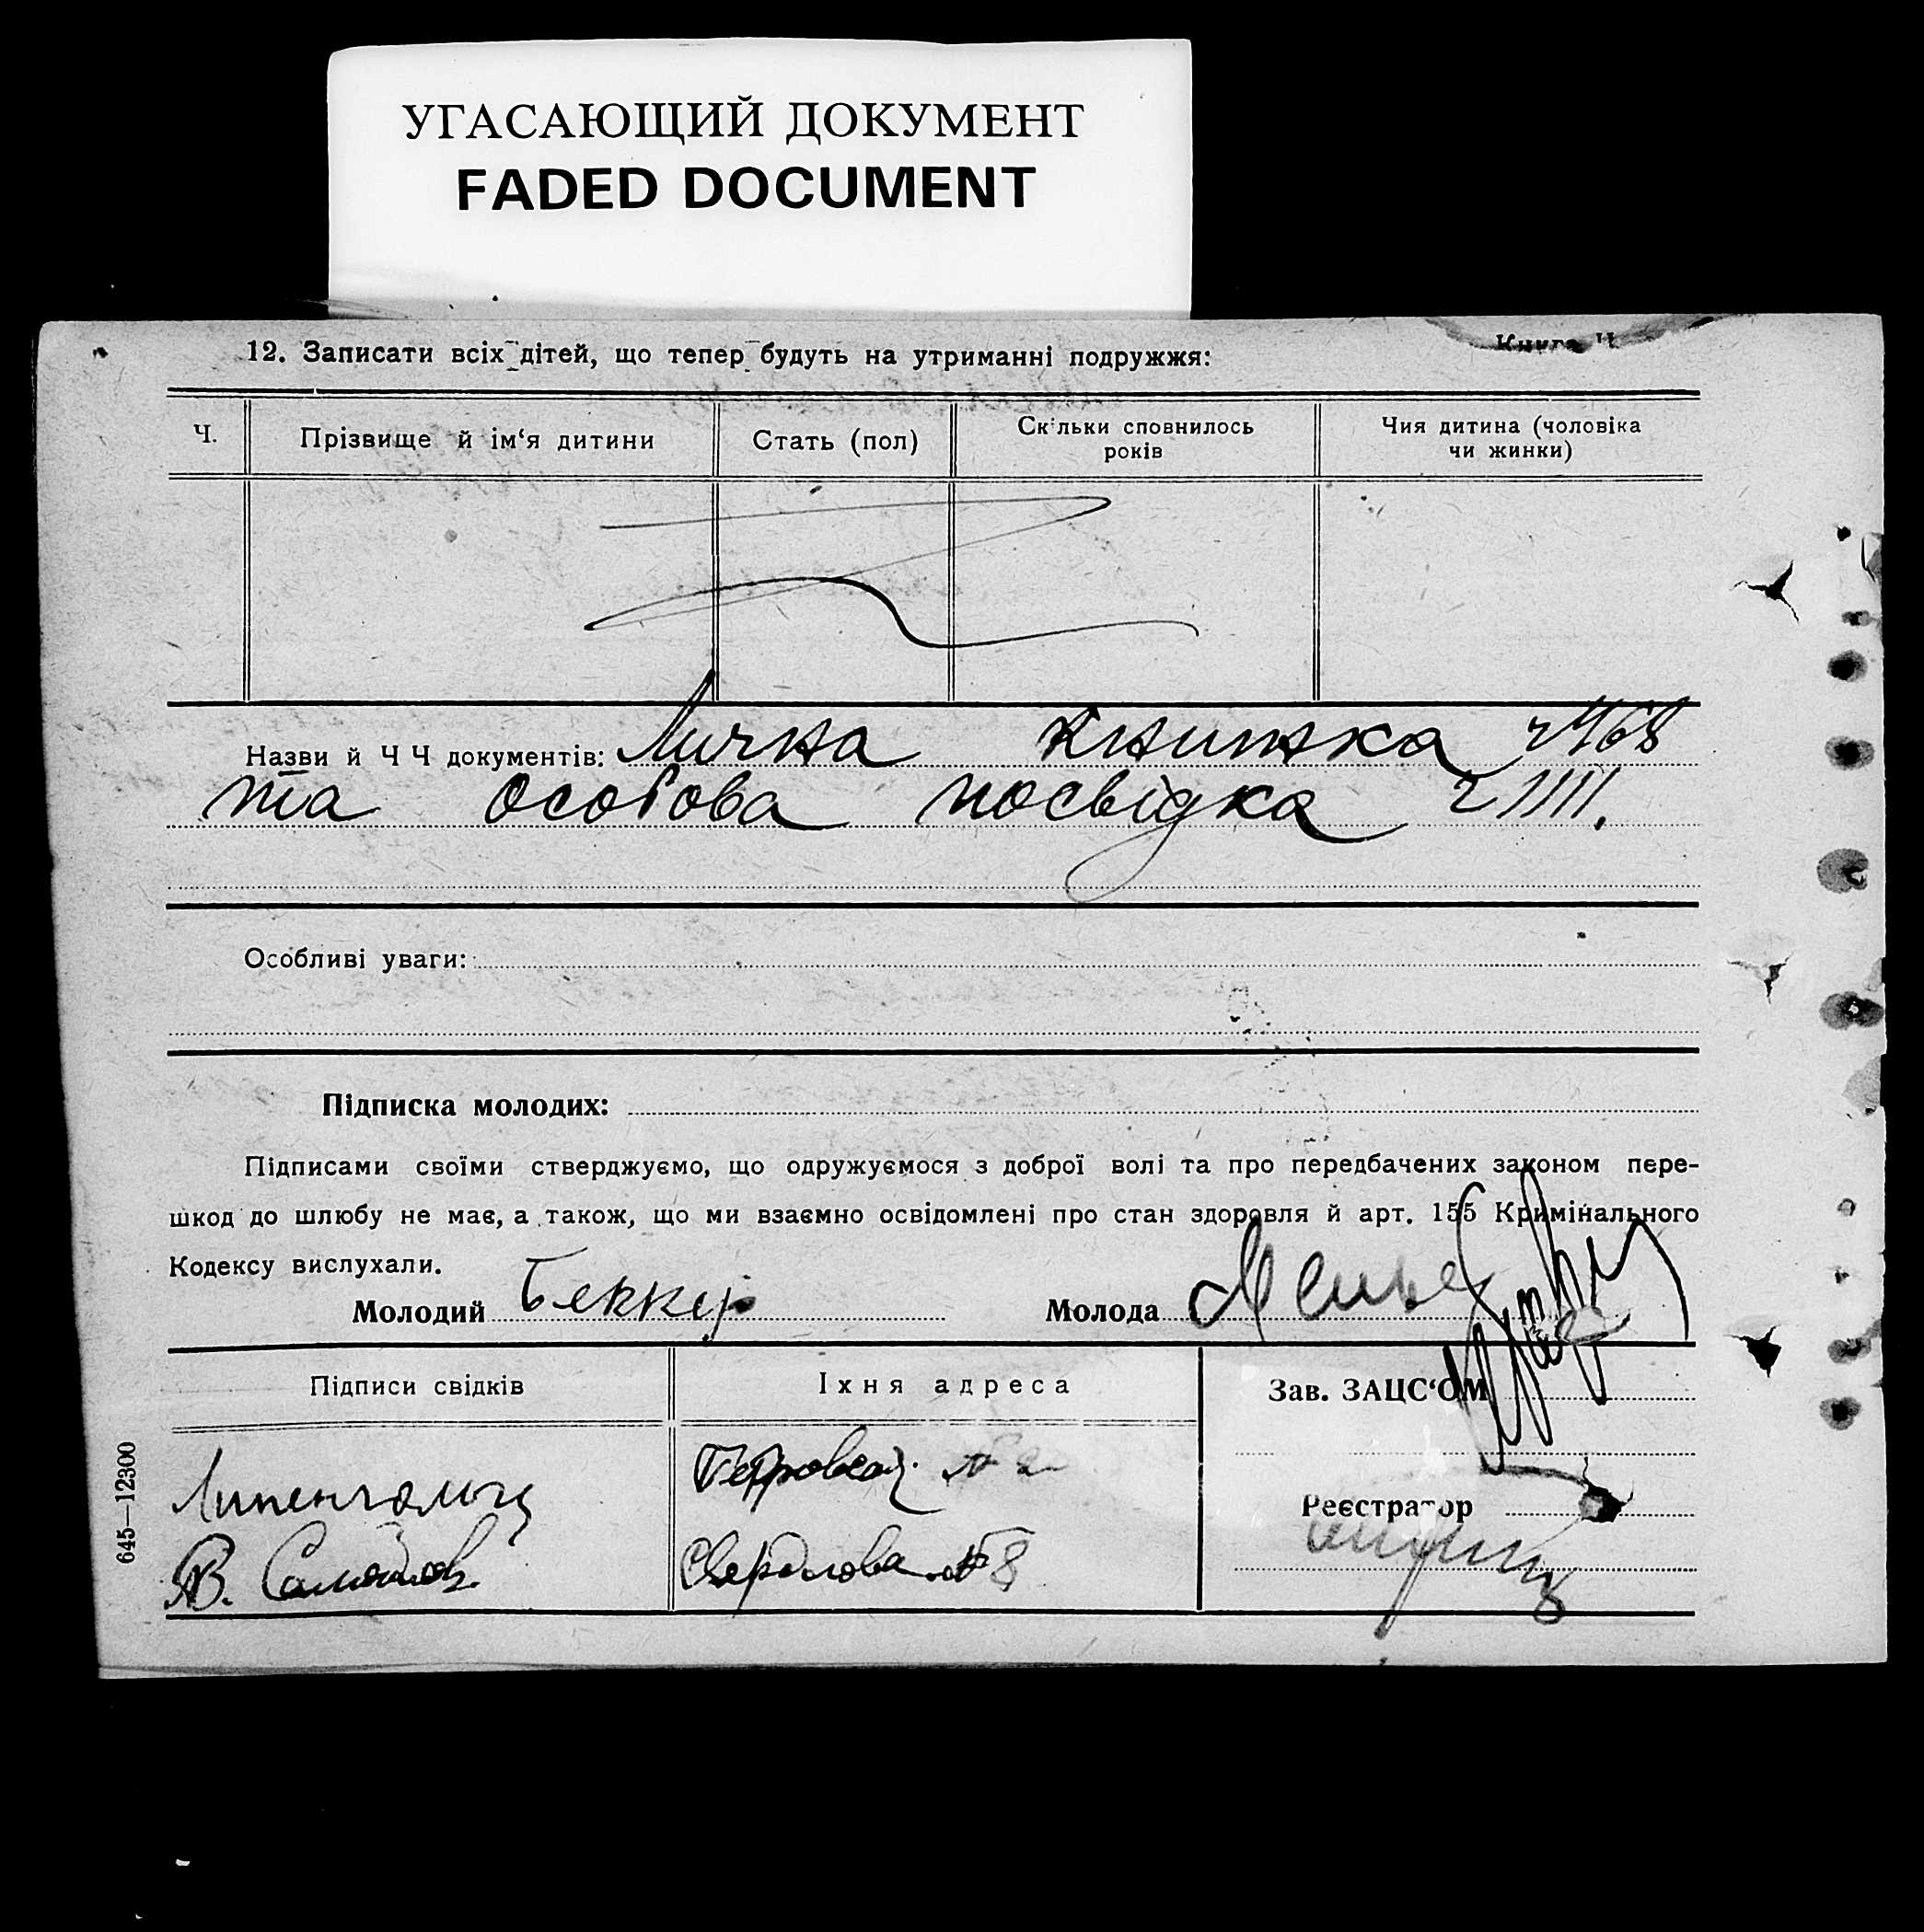 УГАСАЮЩИЙ ДОКУМЕНТ
FADED DOCUMENT
12. Записати всіх дітей, що тепер будуть на утриманні подружжя:
Книга Ч.
Ч.
Прізвище й ім‘я дитини
Стать (пол)
Скільки сповнилось
років
Чия дитина (чоловіка
чи жинки)
Назви й Ч Ч документів: Лична Книжка
та Особова посвідка
Особливі уваги:
Підписка молодих:
Підписами своїми стверджуємо, що одружуємося з доброї волі та про передбачених законом пере-
шкод до шлюбу не має, а також, що ми взаємно освідомлені про стан здоровля й арт. 155 Кримінального
Кодексу вислухали.
Молодий Беккер
Молода
Підписи свідків
Їхня адреса
Зав. ЗАЦС‘ОМ
Петровская №
Реєстратор
Свердлова № 8
645—12300